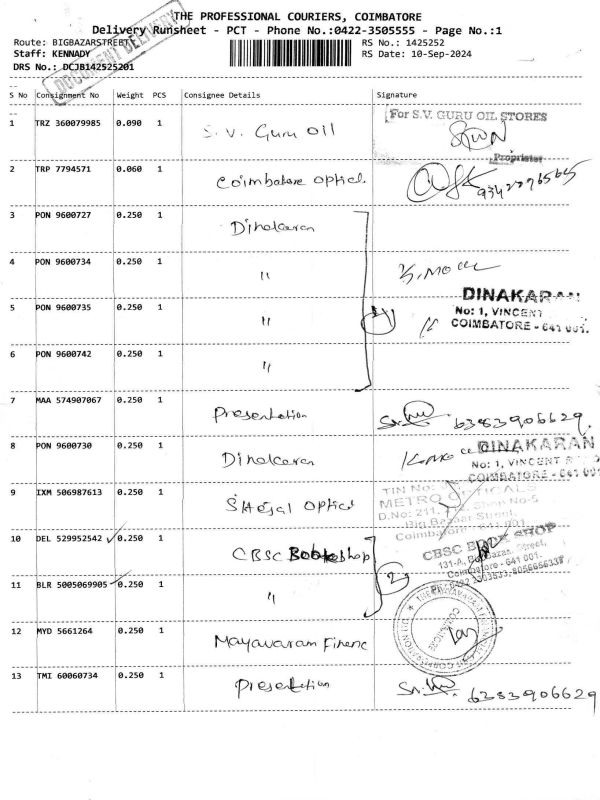 THE PROFESSIONAL COURIERS, COIMBATORE
Delivery Runsheet - PCT - Phone No.:0422-3505555 - Page No.:1
Route: BIGBAZARSTREET
RS No.: 1425252
Staff: KENNADY
RS Date: 10-Sep-2024
DRS No.: DCJB142525201
DOCUMENT DELIVERY
S No Consignment No Weight PCS Consignee Details Signature
1 TRZ 360079985 0.090 1 S.V. Guru Oil
For S.V. GURU OIL STORES
Proprietor
2 TRP 7794571 0.060 1 Coimbatore Optical
9342276565
3 PON 9600727 0.250 1 Dinakaran
4 PON 9600734 0.250 1 "
DINAKARAN
No: 1, VINCENT
COIMBATORE - 641 001.
5 PON 9600735 0.250 1 "
4
6 PON 9600742 0.250 1 "
7 MAA 574907067 0.250 1 Presentation
6383906629.
8 PON 9600730 0.250 1 Dinakaran
DINAKARAN
No: 1, VINCENT
COIMBATORE - 641 001
9 IXM 506987613 0.250 1 Shejal Optical
TIN No:
METRO OPTICALS
D.No: 211, Shop No-5
Big Bazaar Street,
Coimbatore - 641 001.
10 DEL 529952542 0.250 1 CBSC Bookshop
CBSC BOOK SHOP
131-A, Big Bazaar Street,
Coimbatore - 641 001.
2
11 BLR 5005069905 0.250 1 "
12 MYD 5661264 0.250 1 Mayavaram Financ
COIMBATORE
13 TMI 60060734 0.250 1 Presentation
6383906629